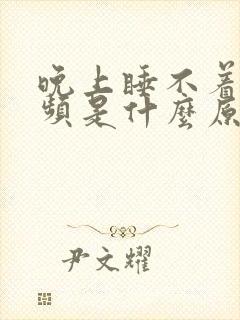 晚上睡不着
频是什麼原
尹文耀